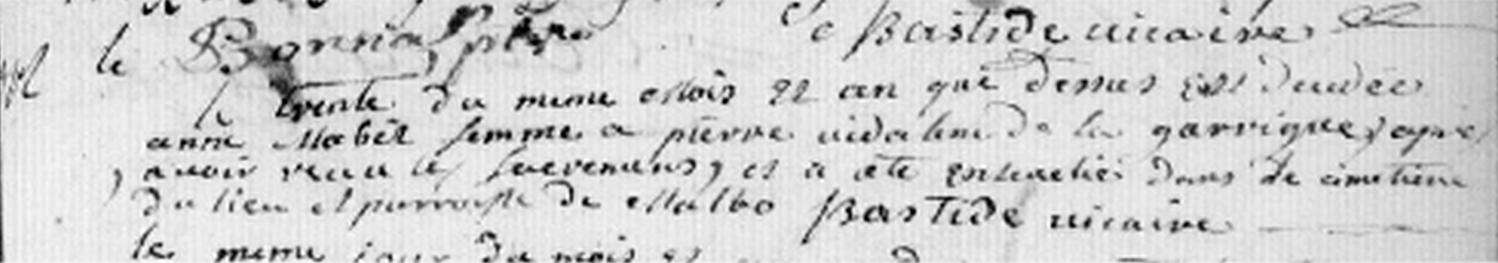 Bastide vicaire
le Bonnal ptre
le trente du meme mois et an que dessus est decedée
anne Mabit femme a pierre vidalenc de la garrigue, apres
avoir recu les sacremens, et a ete enterrée dans le cimetiere
du lieu et parroisse de Malbo Bastide vicaire
le meme jour du mois et